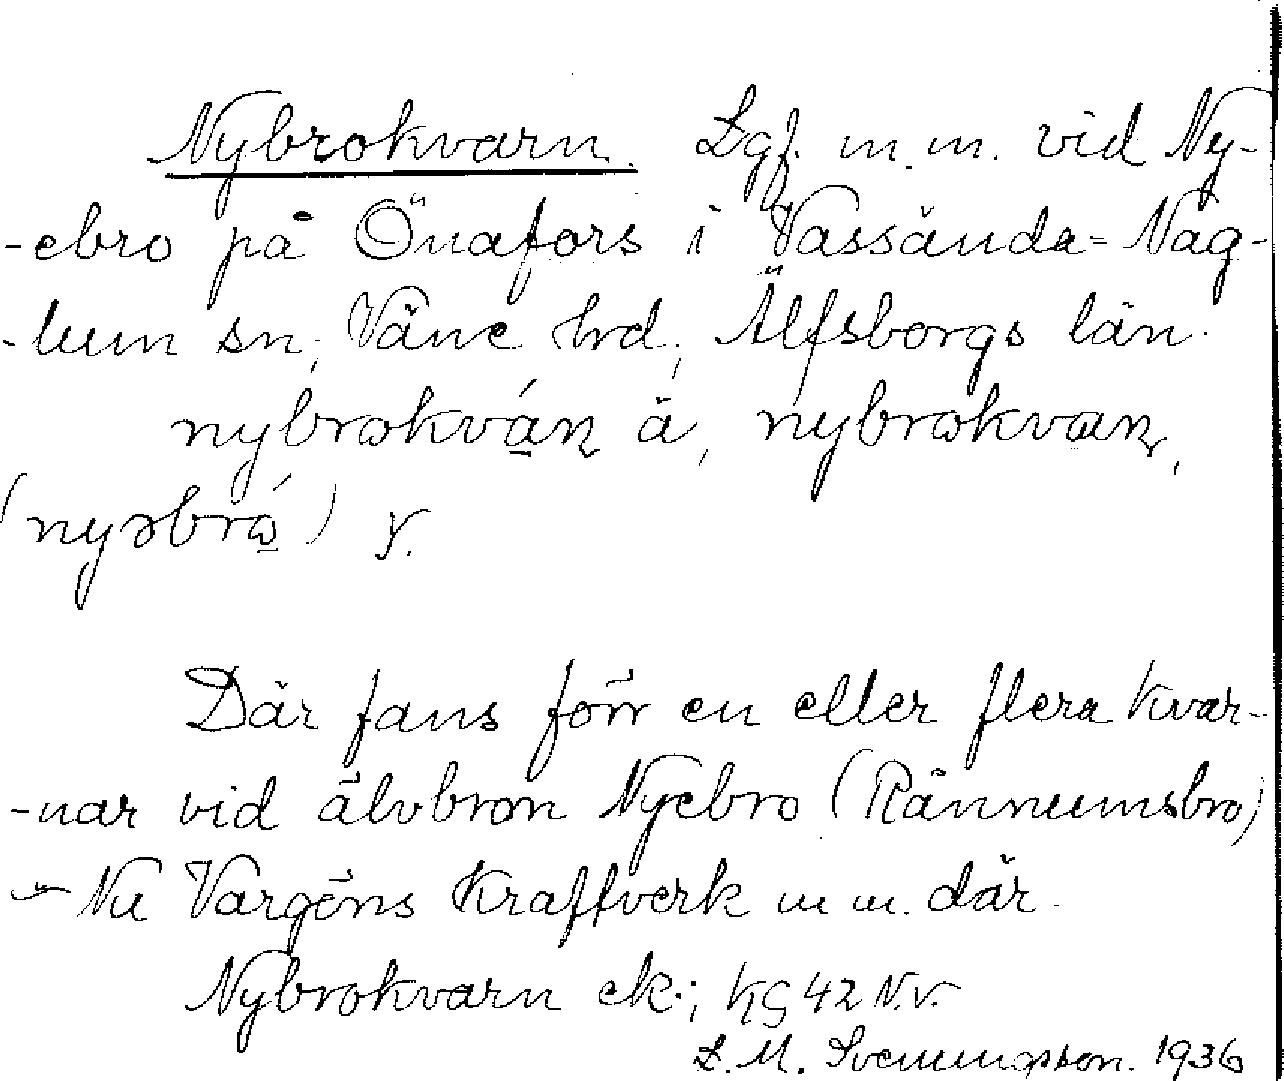 Nybrokvarn. Lgf. m.m. vid Ny-
-ebro på Önafors i Vassända-Nag-
-lum sn, Väne hrd, Älfsborgs län.
nybrokván ä, nybrokvan,
(nyəbró) γ.
Där fans förr en eller flera kvar-
-nar vid älvbron Nyebro (Rännumsbro)
- Nu Vargöns Kraftverk m m. där.
Nybrokvarn ek.; KG 42 N.V.
L. M. Svenungsson. 1936